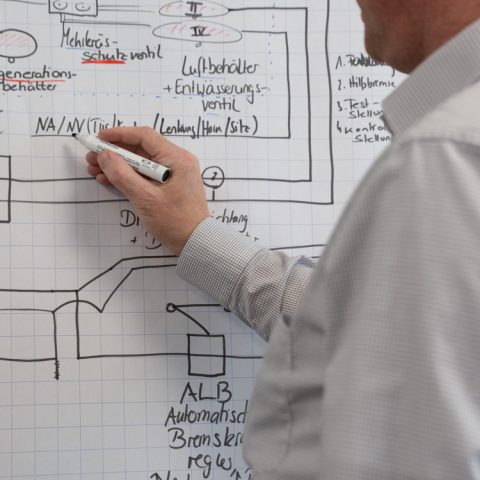 II
IV
Mehrkreis-
schutzventil
generations-
behälter
Luftbehälter
+ Entwässerungs-
ventil
NA/NV (Tür/
/Lenkung/Horn/Sitz)
1.
2. Hilfsbremse
3. Test-
stellung
4. Kontroll
Stellung
ALB
Automatisch
Bremskra
regler